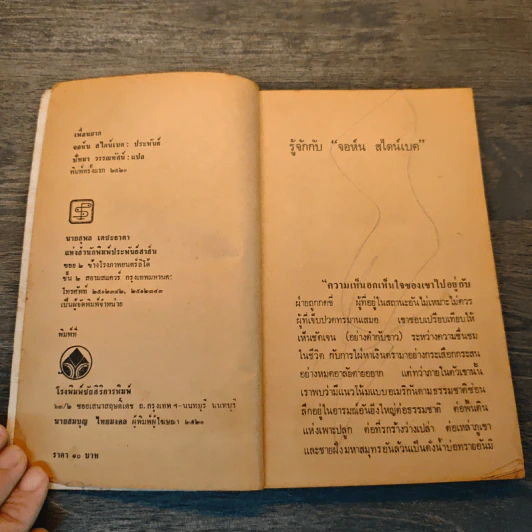 เพื่อนยาก
จอห์น สไตน์เบค: ประพันธ์
ปัทมา วรรณทัสน์: แปล
พิมพ์ครั้งแรก ๒๕๒๐
นายสุพล เตชะธาดา
แห่งสำนักพิมพ์ประพันธ์สาส์น
ซอย ๒ ข้างโรงภาพยนตร์ลิโด้
ชั้น ๒ สยามสแควร์ กรุงเทพมหานคร
เป็นผู้จัดพิมพ์จำหน่าย
พิมพ์ที่
โรงพิมพ์ชัยศิริการพิมพ์
๒๓/๒ ซอยเสนาสฤษดิ์เดช ถ. กรุงเทพ ฯ-นนทบุรี นนทบุรี
นายสมบุญ ไทยมงคล ผู้พิมพ์ผู้โฆษณา ๒๕๒๐
ราคา ๑๐ บาท
รู้จักกับ “จอห์น สไตน์เบค”
“ความเห็นอกเห็นใจของเขาไปอยู่กับ
ฝ่ายถูกกดขี่ ผู้ที่อยู่ในสถานะอันไม่เหมาะไม่ควร
ผู้ที่เจ็บปวดทรมานเสมอ เขาชอบเปรียบเทียบให้
เห็นชัดเจน (อย่างดำกับขาว) ระหว่างความชื่นชม
ในชีวิต กับการใฝ่หาเงินตรามาอย่างกระเสือกกระสน
อย่างหมดอาลัยตายอยาก แต่ทว่าภายในตัวเขานั้น
เราพบว่ามีแนวโน้มแบบอเมริกันตามธรรมชาติซ่อน
ลึกอยู่ในอารมณ์อันยิ่งใหญ่ต่อธรรมชาติ ต่อพื้นดิน
แห่งเพาะปลูก ต่อที่รกร้างว่างเปล่า ต่อเหล่าภูเขา
และชายฝั่งมหาสมุทรอันล้วนเป็นดั่งน้ำบ่อทรายอันมิ